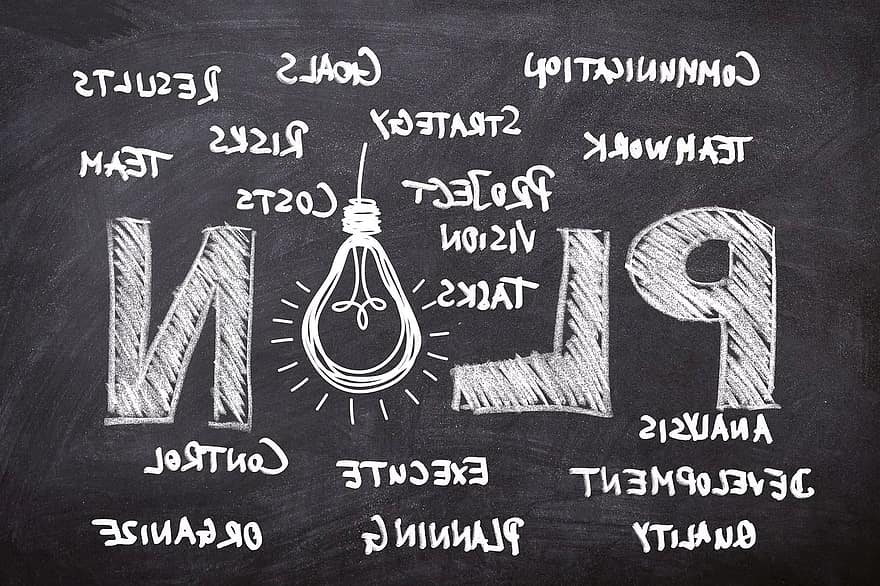 COMMUNICATION
GOALS
RESULTS
STRATEGY
RISKS
TEAMWORK
TEAM
PROJECT
COSTS
VISION
TASKS
PLAN
ANALYSIS
CONTROL
EXECUTE
DEVELOPMENT
QUALITY
PLANNING
ORGANIZE